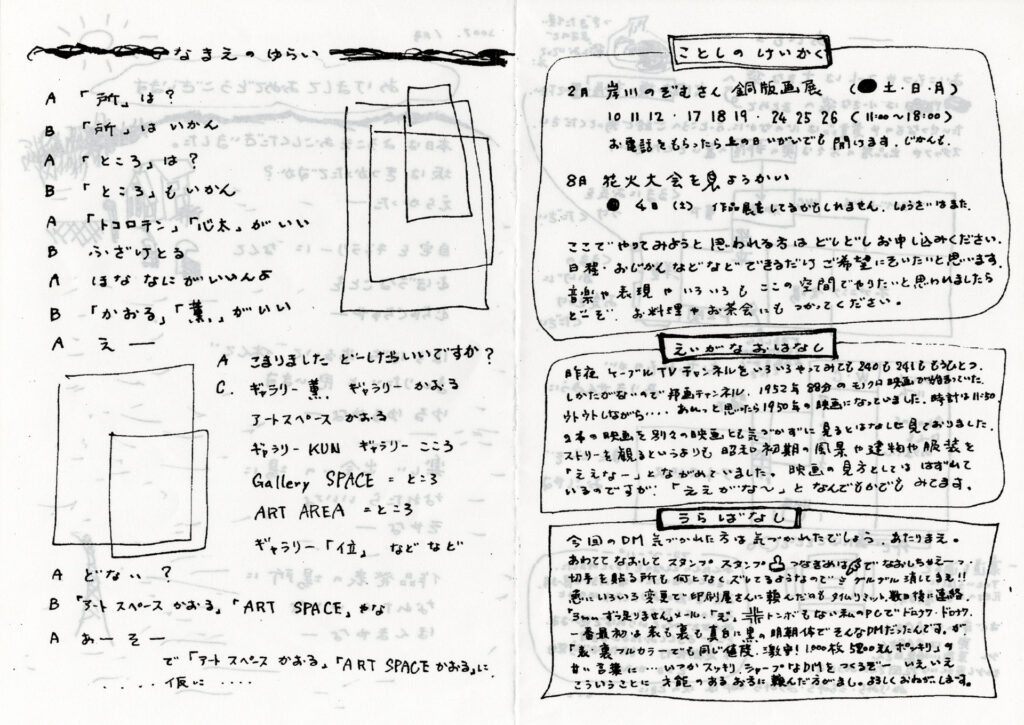 なまえのゆらい
A 「所」は？
B 「所」は いかん
A 「ところ」は？
B 「ところ」も いかん
A 「トコロテン」「心太」がいい
B ふざけとる
A ほな なにがいいんよ
B 「かおる」「薫」がいい
A え ー
A こまりました どーした当いいですか？
C. ギャラリー 薫. ギャラリー かおる
アートスペース かおる
ギャラリー KUN ギャラリー こころ
Gallery SPACE = ところ
ART AREA = ところ
ギャラリー「位」 など など
A どない ？
B 「アート スペース かおる」「ART SPACE」やな
A あーそー
で「アート スペース かおる」「ART SPACE かおる」に
．．．．仮に．．．．
ことしの けいかく
2月 岸川のぞむさん 銅版画展 （ 土・日・月）
10 11 12 ・ 17 18 19 ・ 24 25 26 （11:00〜18:00）
お電話をもらったら 上の日 いがいでも 開けます. じかんも.
8月 花火大会を見ようかい
4日（土） 作品展をしてるかもしれません. しょうさいはまた.
ここで やってみようと 思われる方は どしどし お申し込みください.
日程・おじかん などなど できるだけ ご希望にそいたいと思います.
音楽や 表現 や いろいろ も ここの 空間でやりたいと思われましたら
どーぞ. お料理や お茶会 にも つかってください。
えいがな おはなし
昨夜 ケーブルTV チャンネルを いろいろ やってみても 240も 241も もうひとつ.
しかたがないので 邦画チャンネル. 1952年 88分の モノクロ映画が始まっていた.
ウトウトしながら．．．． あれっと思ったら 1950年の映画になっていました. 時計は11:30.
2本の映画を 別々の映画とも 気づかずに 見るとはなしに 見ておりました.
ストリーを観るというよりも 昭和初期の風景や建物や服装を
「ええなー」と ながめていました. 映画の見方としては はずれて
いるのですが. 「ええがな〜」と なんでもかでも みてます。
うらばなし
今回のDM 気づかれた方は 気づかれたでしょう. あたりまえ。
あわてて なおして スタンプ スタンプ つなぎめは でなおしちゃえーっ
切手を貼る所も 何となく ズレてるようなので グルグル 消してまえ!!
急にいろいろ変更で 印刷屋さんに 頼んだのも タイムリミット. 数日後に連絡.
「3mm ずつ足りません」メール.「え」 トンボもない私のPCで ドロウク・ドロウク.
一番最初は 表も裏も 真白に 黒の 明朝体で そんなDMだったんです. が
「表・裏 フルカラーでも 同じ値段. 激安! 1,000枚 5800えん ポッキリ」の
甘い言葉に … いつか スッキリ シャープなDMを つくるぞー いえいえ
こういうことに 才能 のある お方に 頼んだ方がまし. よろしく おねがいします。